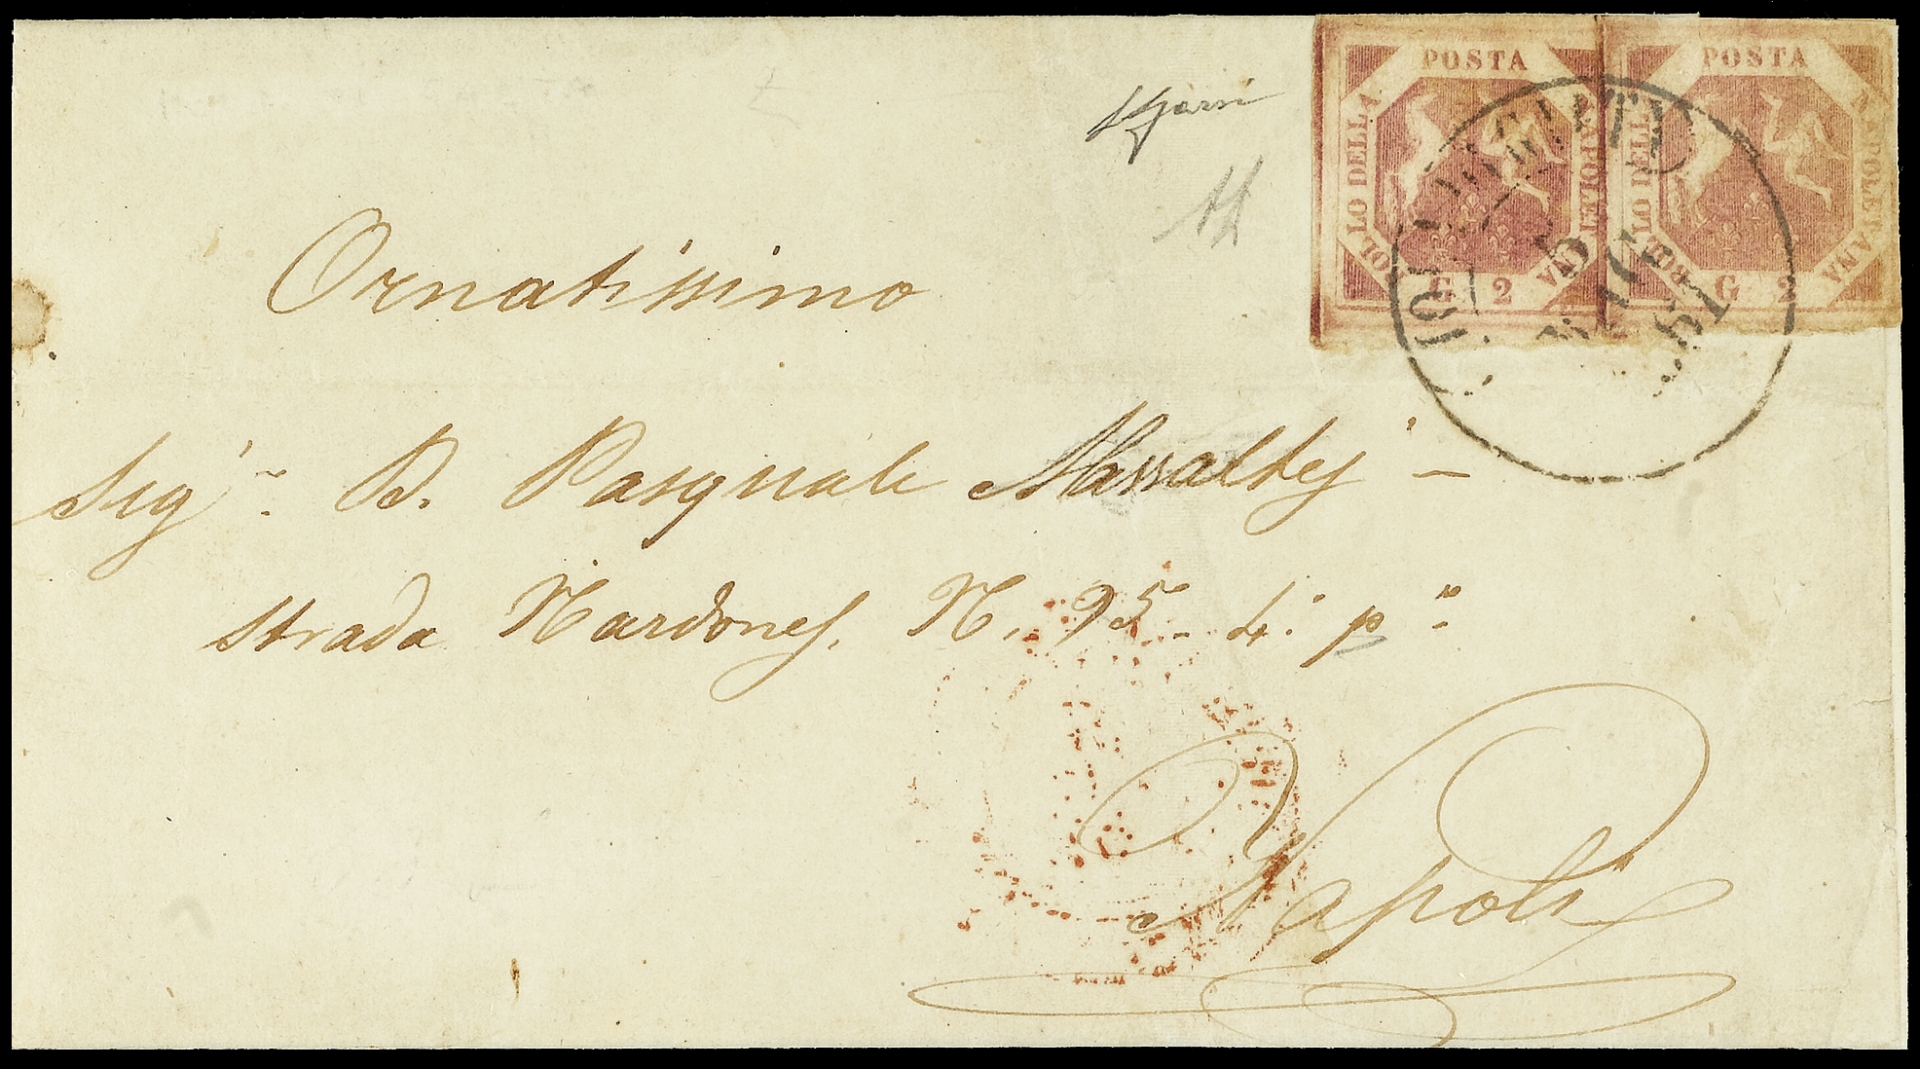 POSTA
BOLLO DELLA
NAPOLETANA
G 2
POSTA
BOLLO DELLA
NAPOLETANA
G 2
Ornatissimo
Sig.r D. Pasquale
strada Nardones. N. 95 - 4.° p.°
Napoli